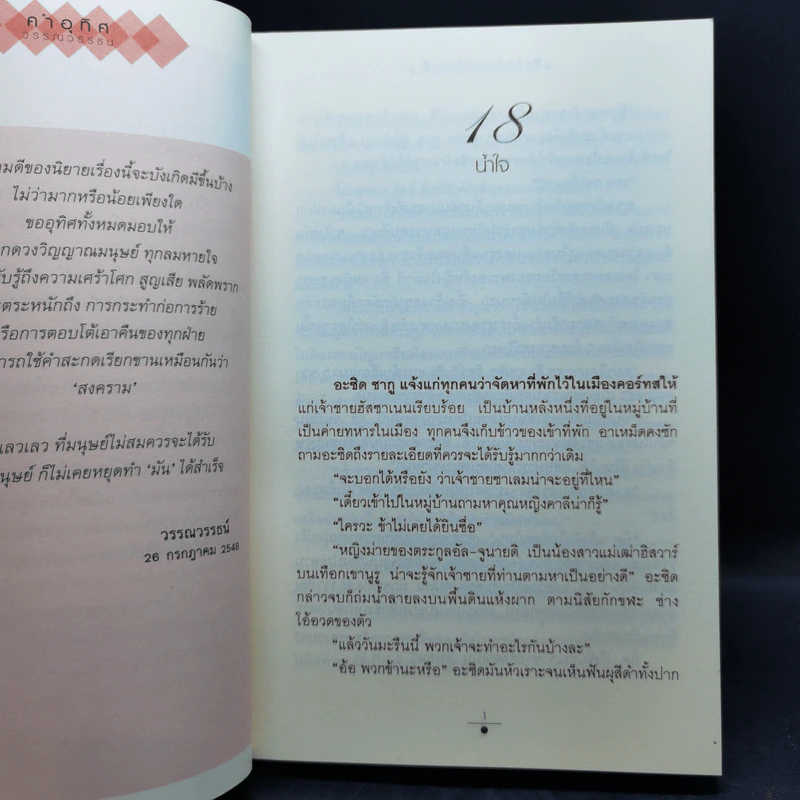 คำอุทิศ
วรรณวรรธน์
มดีของนิยายเรื่องนี้จะบังเกิดมีขึ้นบ้าง
ไม่ว่ามากหรือน้อยเพียงใด
ขออุทิศทั้งหมดมอบให้
กดวงวิญญาณมนุษย์ ทุกลมหายใจ
รับรู้ถึงความเศร้าโศก สูญเสีย พลัดพราก
ตระหนักถึง การกระทำก่อการร้าย
รือการตอบโต้เอาคืนของทุกฝ่าย
ารถใช้คำสะกดเรียกขานเหมือนกันว่า
‘สงคราม’
เลวเลว ที่มนุษย์ไม่สมควรจะได้รับ
นุษย์ ก็ไม่เคยหยุดทำ ‘มัน’ ได้สำเร็จ
วรรณวรรธน์
26 กรกฎาคม 2548
18
น้ำใจ
อะซิด ชากู แจ้งแก่ทุกคนว่าจัดหาที่พักไว้ในเมืองคอร์ทสให้
แก่เจ้าชายฮัสซาเนนเรียบร้อย เป็นบ้านหลังหนึ่งที่อยู่ในหมู่บ้านที่
เป็นค่ายทหารในเมือง ทุกคนจึงเก็บข้าวของเข้าที่พัก อาเหม็ดคงซัก
ถามอะซิดถึงรายละเอียดที่ควรจะได้รับรู้มากกว่าเดิม
“จะบอกได้หรือยัง ว่าเจ้าชายซาเลมน่าจะอยู่ที่ไหน”
“เดี๋ยวเข้าไปในหมู่บ้านถามหาคุณหญิงคาลีน่าก็รู้”
“ใครวะ ข้าไม่เคยได้ยินชื่อ”
“หญิงม่ายของตระกูลอัล-จูนายดิ เป็นน้องสาวแม่เฒ่าฮิสวาร์
บนเทือกเขานูรู น่าจะรู้จักเจ้าชายที่ท่านตามหาเป็นอย่างดี” อะซิด
กล่าวจบก็ถ่มน้ำลายลงบนพื้นดินแห้งผาก ตามนิสัยกักขฬะ ช่าง
โอ้อวดของตัว
“แล้ววันมะรืนนี้ พวกเจ้าจะทำอะไรกันบ้างละ”
“อ้อ พวกข้านะหรือ” อะซิดมันหัวเราะจนเห็นฟันผุสีดำทั้งปาก
๑